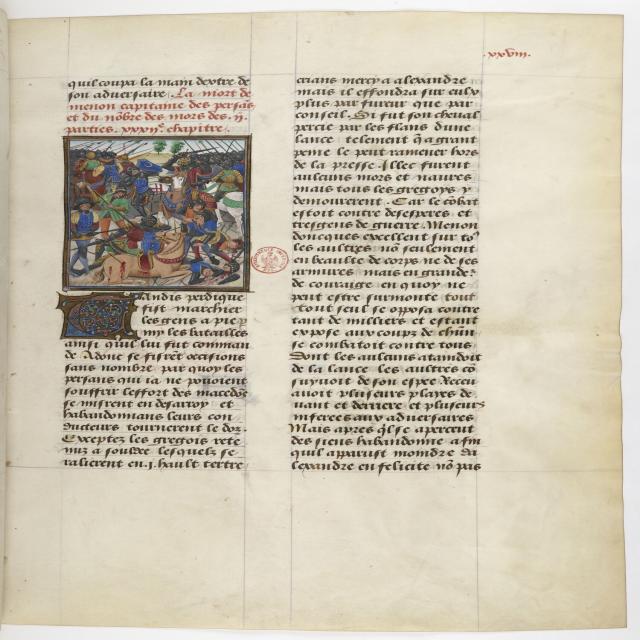 xxviii.
quil coupa la main dextre de
son adversaire. La mort de
menon capitaine des persās
et du nōbre des mors des .ii.
parties. xxxiiᵉ. chapitre.
Tandis perdique
fist marchier
les gens a pie p
my les batailles
ainsi quil lui fut comman
de Adonc se firēt occisions
sans nombre par quoy les
persans qui ia ne povoient
souffrir leffort des macedōs
se mistrent en desarroy et
habandonnans leurs con
ducteurs tournerent le doz.
Exceptez les gregois rete
nuz a souldee lesquelz se
ralierent en .i. hault tertre
crians mercy a alexandre
mais il effondra sur eulx
plus par fureur que par
conseil. Si fut son cheval
percie par les flans dune
lance telement q̄ a grant
peine le peut ramener hors
de la presse. Illec furent
aulcuns mors et naures
mais tous les gregoys y
demourerent. Car le cōbat
estoit contre desesperes et
tresgens de guerre. Menon
doncques excellent sur toꝰ
les aultres nō seulement
en beaulte de corps ne de ses
armures mais en grande^r
de couraige en quoy ne
peut estre surmonte tout
tout seul se opposa contre
tant de milliers et estant
expose aux coupz de chūn
se combatoit contre tous
Dont les aulcuns ataindoit
de la lance les aultres cō
suyuoit de son espee Receu
auoit plusieurs playes de
uant et derriere et plusieurs
inferees aux adversaires
Mais apres q̄l se apperceut
des siens habandonne afin
quil apparust moindre da
lexandre en felicite nō pas